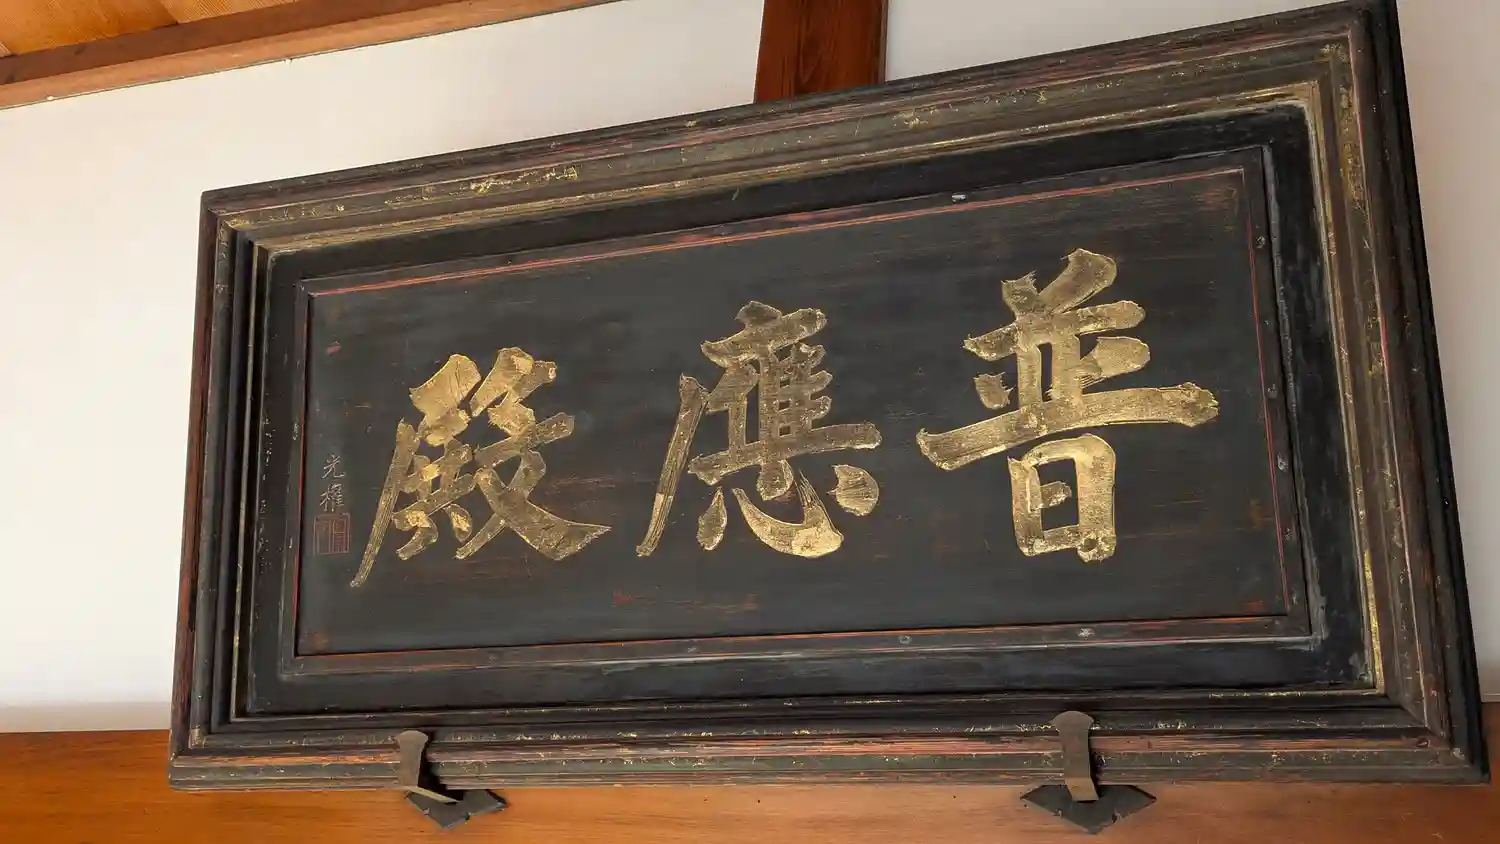 普應殿
光權